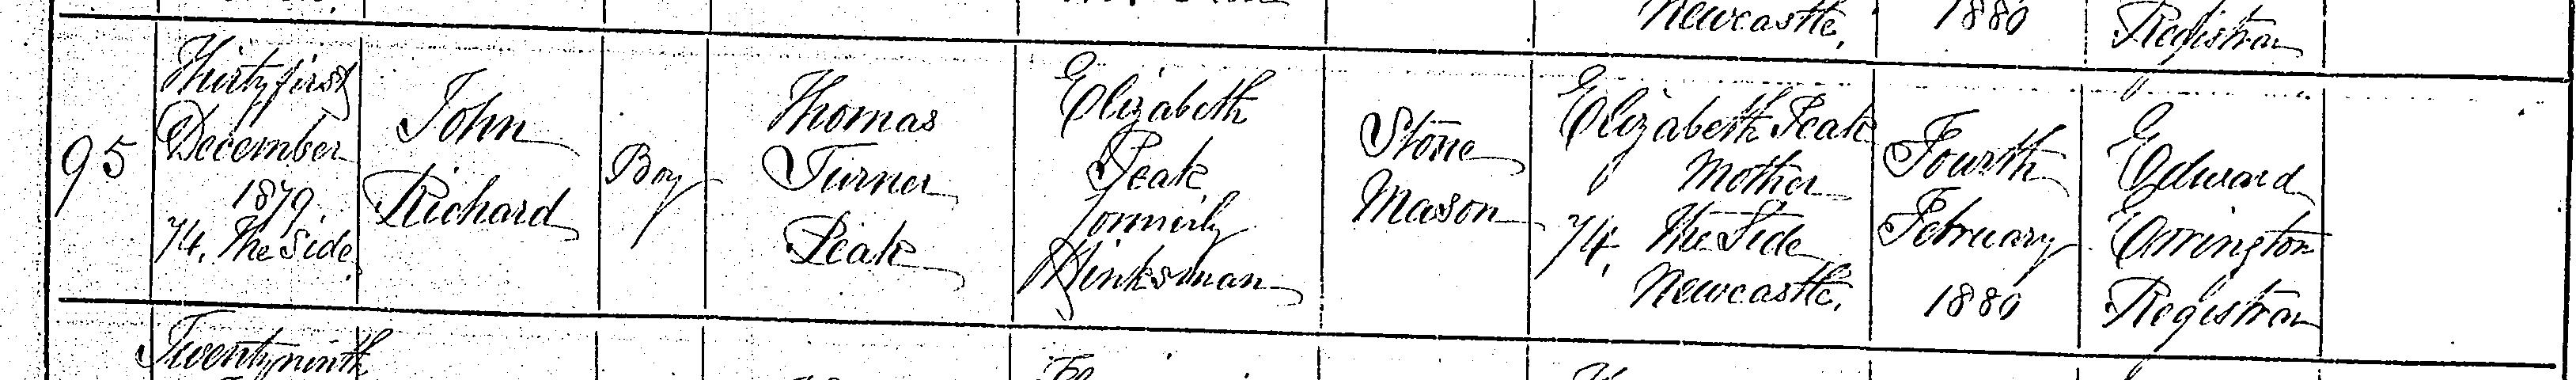 Newcastle.
1880
Registrar
95
Thirty first
December
1879.
74. The Side.
John
Richard
Boy
Thomas
Turner
Peak
Elizabeth
Peak
formerly
Hinksman
Stone
Mason
Elizabeth Peak
Mother
74. The Side
Newcastle.
Fourth
February
1880
Edward
Errington
Registrar
Twenty ninth